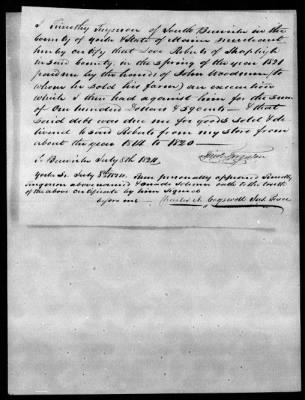 I Timothy Ferguson of South Berwick in the
County of York & State of Maine Merchant
hereby certify that Love Roberts of Shapleigh
in said County, in the Spring of the year 1821
paid me by the hands of John Woodman (to
whom he sold his farm) an execution
which I then had against him for the sum
of One hundred Dollars & cents & that
said debt was due me for goods sold & de
livered to said Roberts from my store from
about the year 1814 to 1820 —
S. Berwick July 8th 1824.
Ferguson
York Ss. July 8th 1824. Then personally appeared Timothy
Ferguson above named & made Solemn oath to the truth
of the above Certificate by him Signed
before me — Charles N. Cogswell Just. Peace